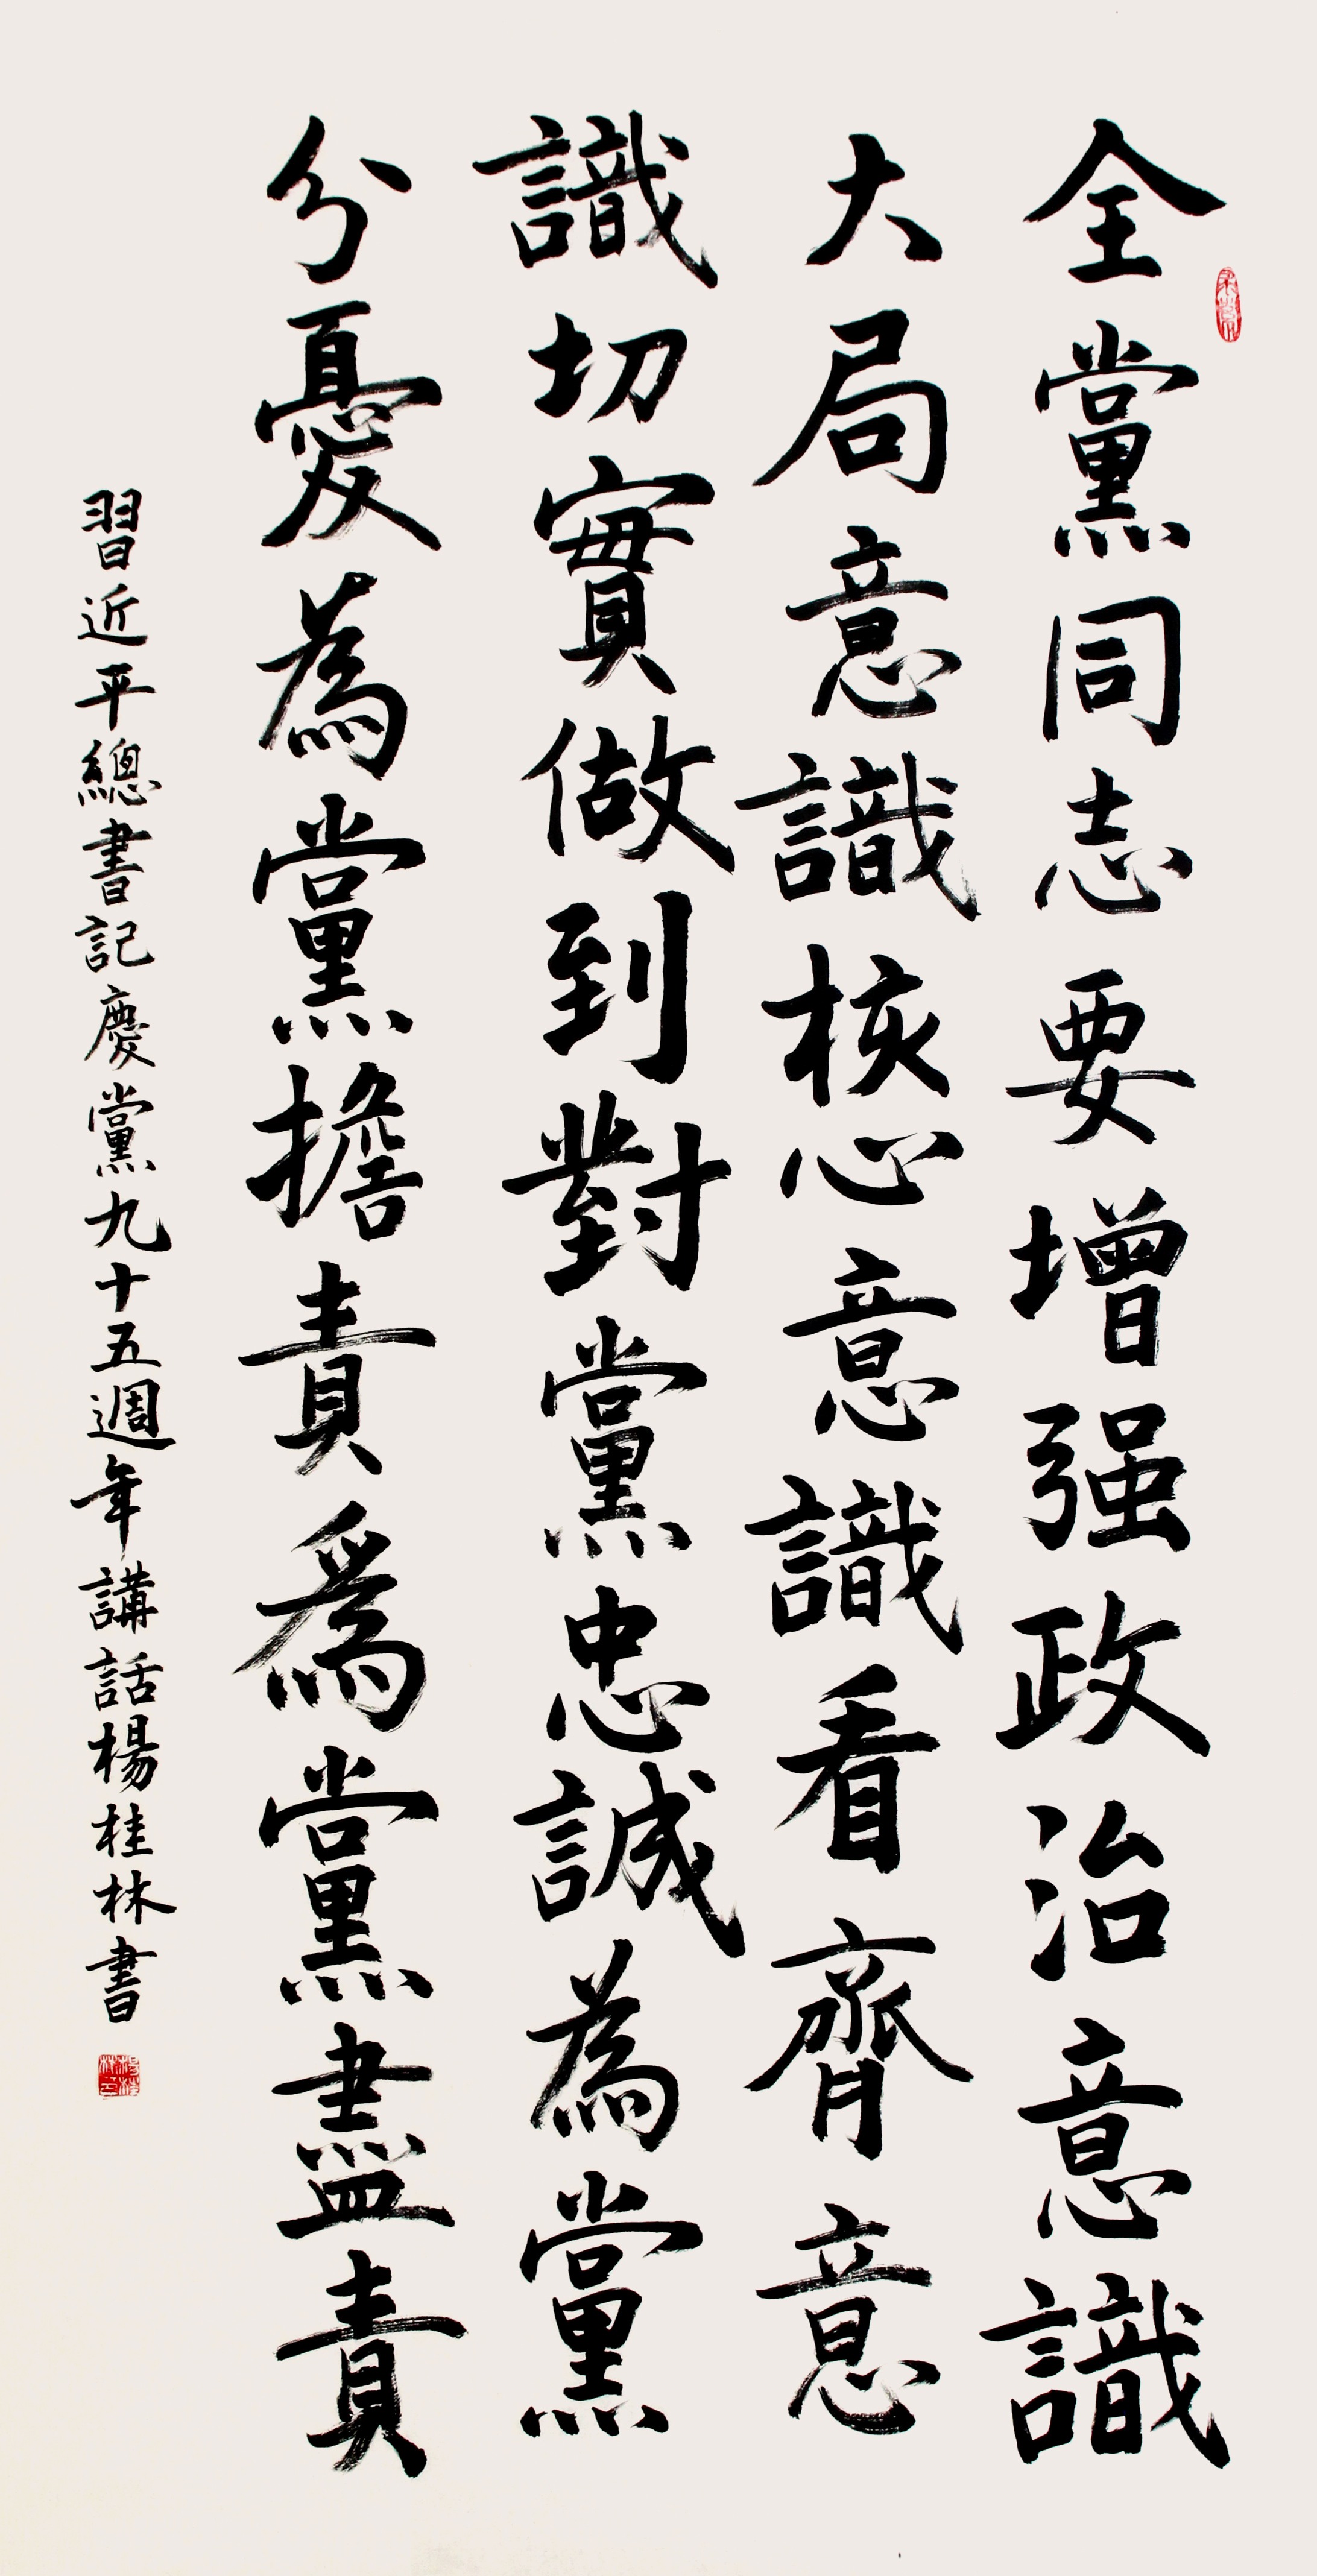 全黨同志要增强政治意識
大局意識核心意識看齊意
識切實做到對黨忠誠為黨
分憂為黨擔責爲黨盡責
習近平總書記慶黨九十五週年講話楊桂林書